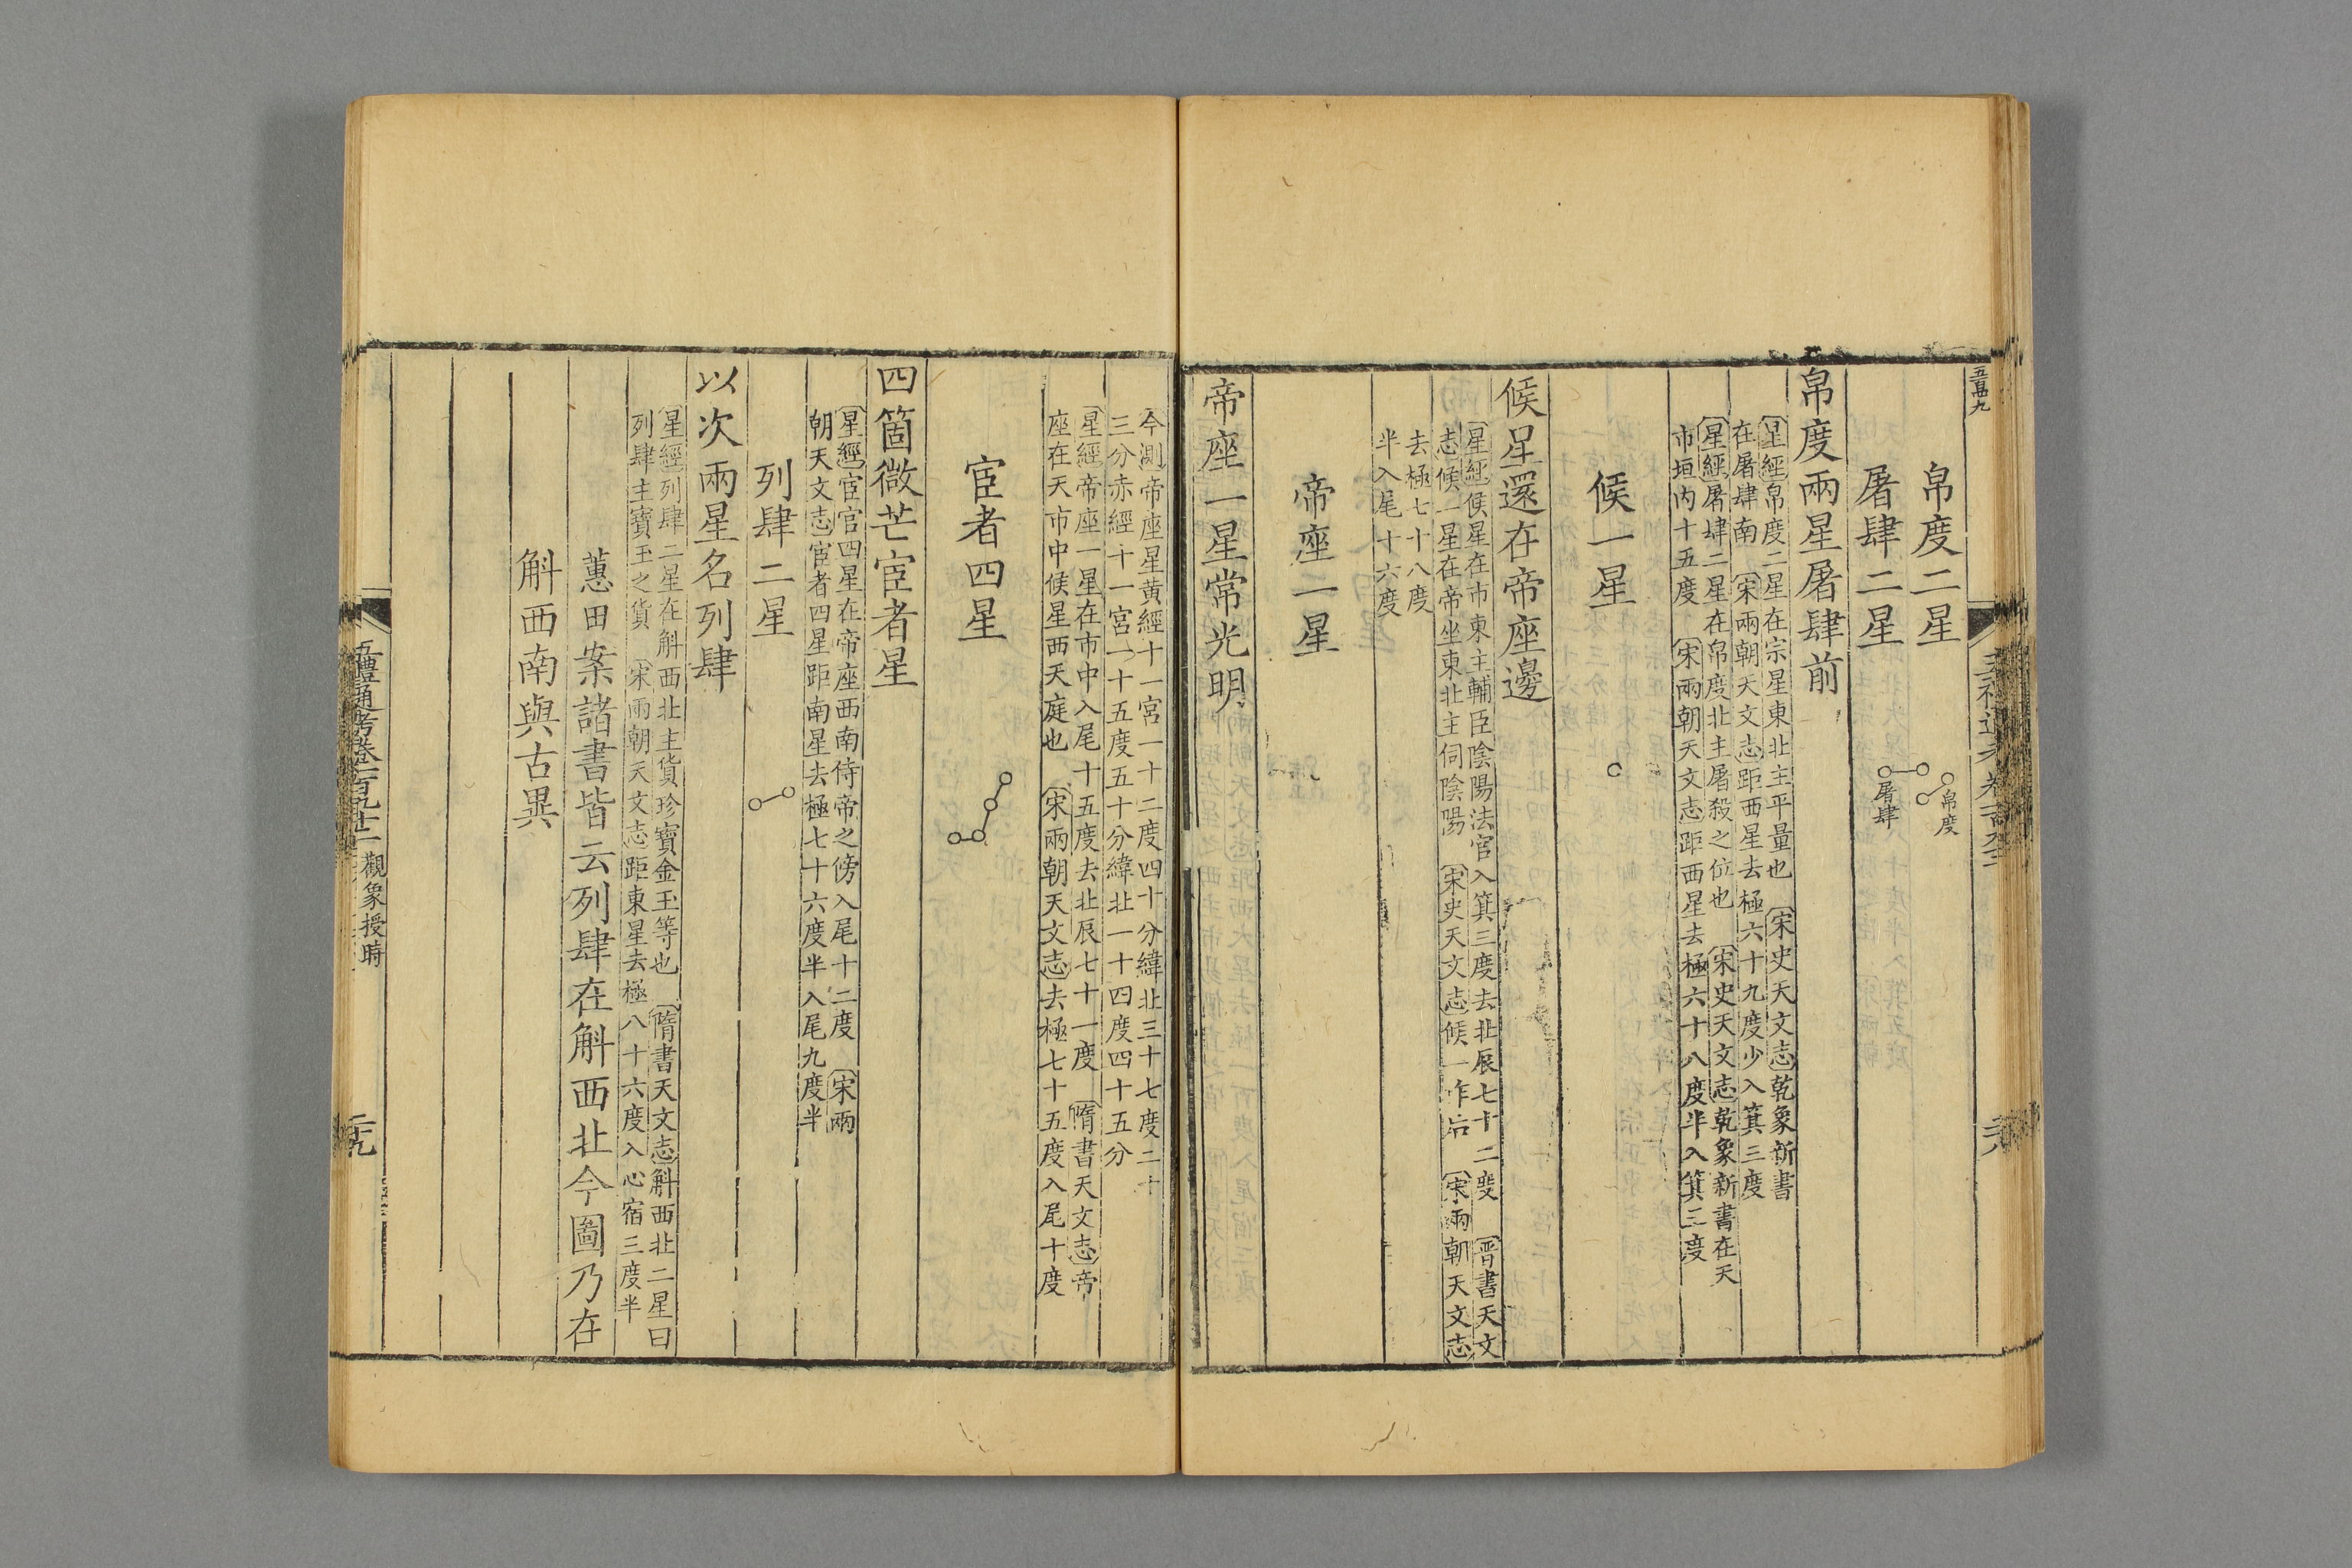 五百四九
帛度二星
屠肆二星
帛度
屠肆
帛度兩星屠肆前
星經帛度二星在宗星東北主平量也 宋史天文志乾象新書
在屠肆南 宋兩朝天文志距西星去極六十九度少入箕三度
星經屠肆二星在帛度北主屠殺之位也 宋史天文志乾象新書在天
市垣內十五度 宋兩朝天文志距西星去極六十八度半入箕三度
候一星
候星還在帝座邊
星經候星在市東主輔臣陰陽法官入箕三度去北辰七十二度 晉書天文
志候一星在帝坐東北主伺陰陽 宋史天文志候一作后 宋兩朝天文志
去極七十八度
半入尾十六度
帝座一星
帝座一星常光明
今測帝座星黃經十一宮一十二度四十分緯北三十七度二十
三分赤經十一宮一十五度五十分緯北一十四度四十五分
星經帝座一星在市中入尾十五度去北辰七十一度 隋書天文志帝
座在天市中候星西天庭也 宋兩朝天文志去極七十五度入尾十度
宦者四星
四箇微芒宦者星
星經宦官四星在帝座西南侍帝之傍入尾十二度 宋兩
朝天文志宦者四星距南星去極七十六度半入尾九度半
列肆二星
以次兩星名列肆
星經列肆二星在斛西北主貨珍寶金玉等也 隋書天文志斛西北二星曰
列肆主寶玉之貨 宋兩朝天文志距東星去極八十六度入心宿三度半
蕙田案諸書皆云列肆在斛西北今圖乃在
斛西南與古異
五禮通考卷一百九十二 觀象授時
二十九